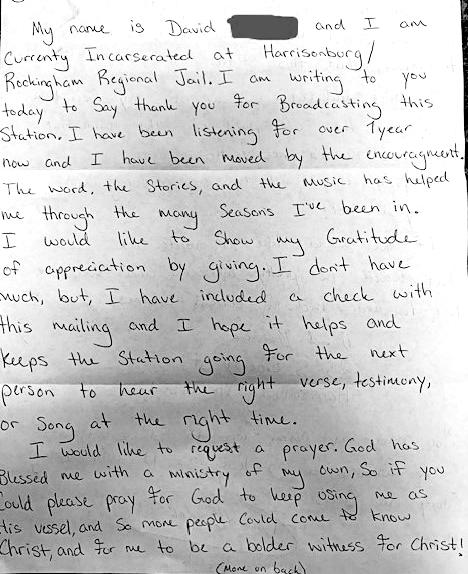 My name is David and I am
Currenty Incarserated at Harrisonburg/
Rockingham Regional Jail. I am writing to you
today to Say thank you For Broadcasting this
Station. I have been listening For over 1year
now and I have been moved by the encouragment.
The word, the Stories, and the Music has helped
me through the many Seasons I've been in.
I would like to Show my Gratitude
of appreciation by giving. I don't have
much, but, I have included a check with
this mailing and I hope it helps and
Keeps the Station going For the next
person to hear the right verse, testimony,
or Song at the right time.
I would like to request a prayer. God has
Blessed me with a ministry of my own, So if you
Could please pray For God to keep using me as
His vessel, and So more people Could come to know
Christ, and For me to be a bolder witness For Christ!
(More on back)